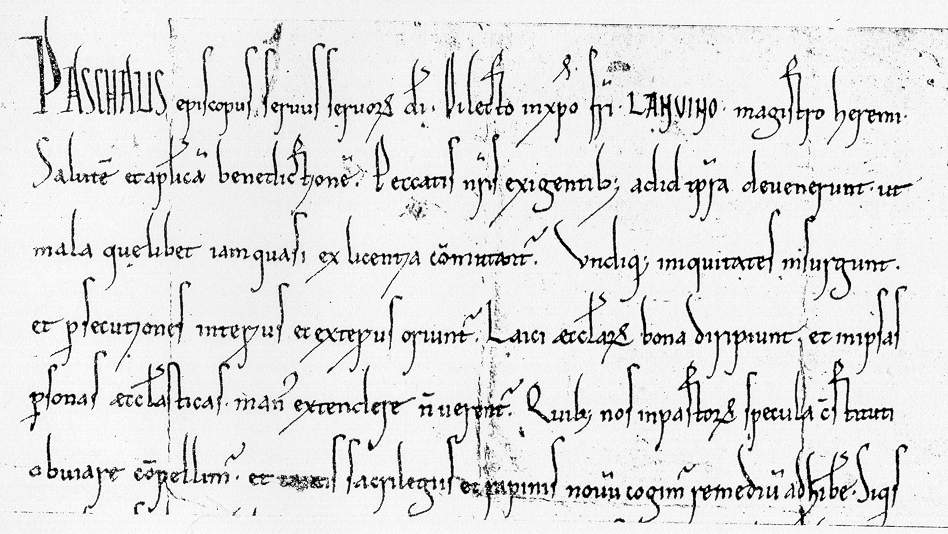 PASCHALIS episcopus servus servorꝝ dī. Dilecto inxpo frī. LANVINO. magistro heremi.
Salutē et aplicā benedictionē. Peccatis nrīs exigentib; adid tēpora devenerunt. ut
mala quęlibet iam quasi ex licentia cōmutant. Undiq; iniquitates insurgunt.
et psecutiones interius et exterius oriunt. Laici ęcclarꝝ bona diripiunt. et inipsas
psonas ęcclasticas. man extendere n̄ verent. Quib; nos inpastorꝝ specula cstituti
obviare cōpellim. et sacrilegiis et rapinis novū cogim remediū adhibe. Siqs